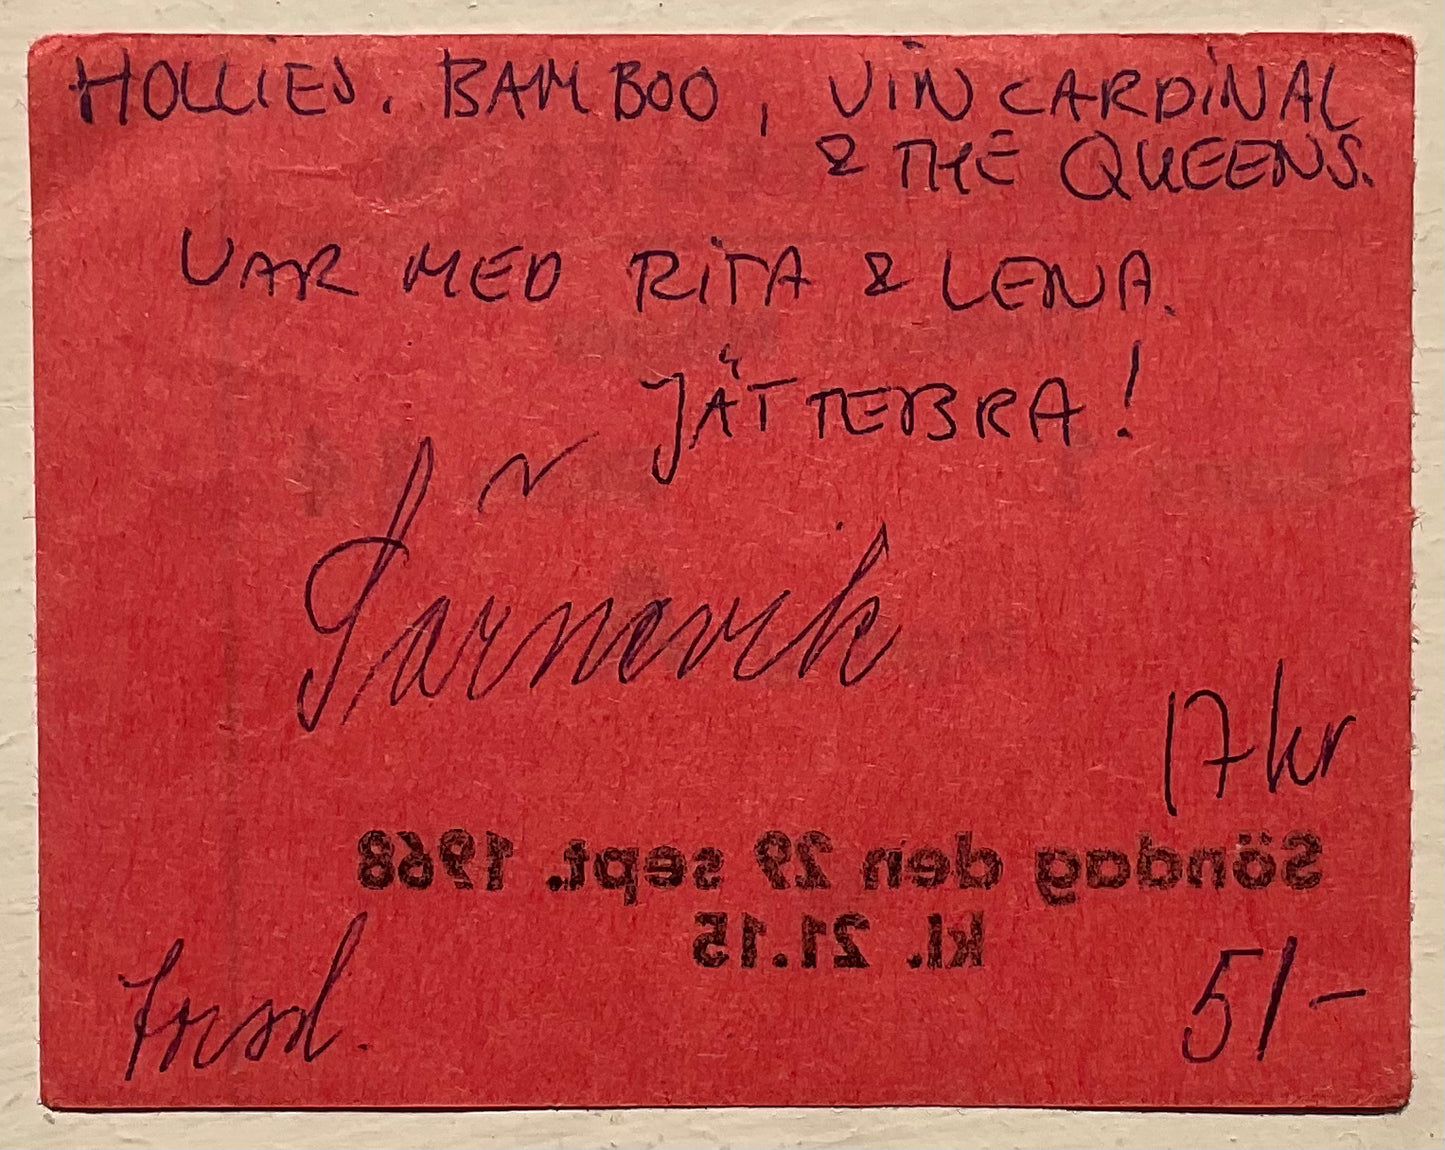 HOLLIES. BAMBOO, VIN CARDINAL
& THE QUEENS.
VAR MED RITA & LENA.
JÄTTEBRA!
17 kr
Söndag den 29 sept. 1968
kl. 21.15
51-